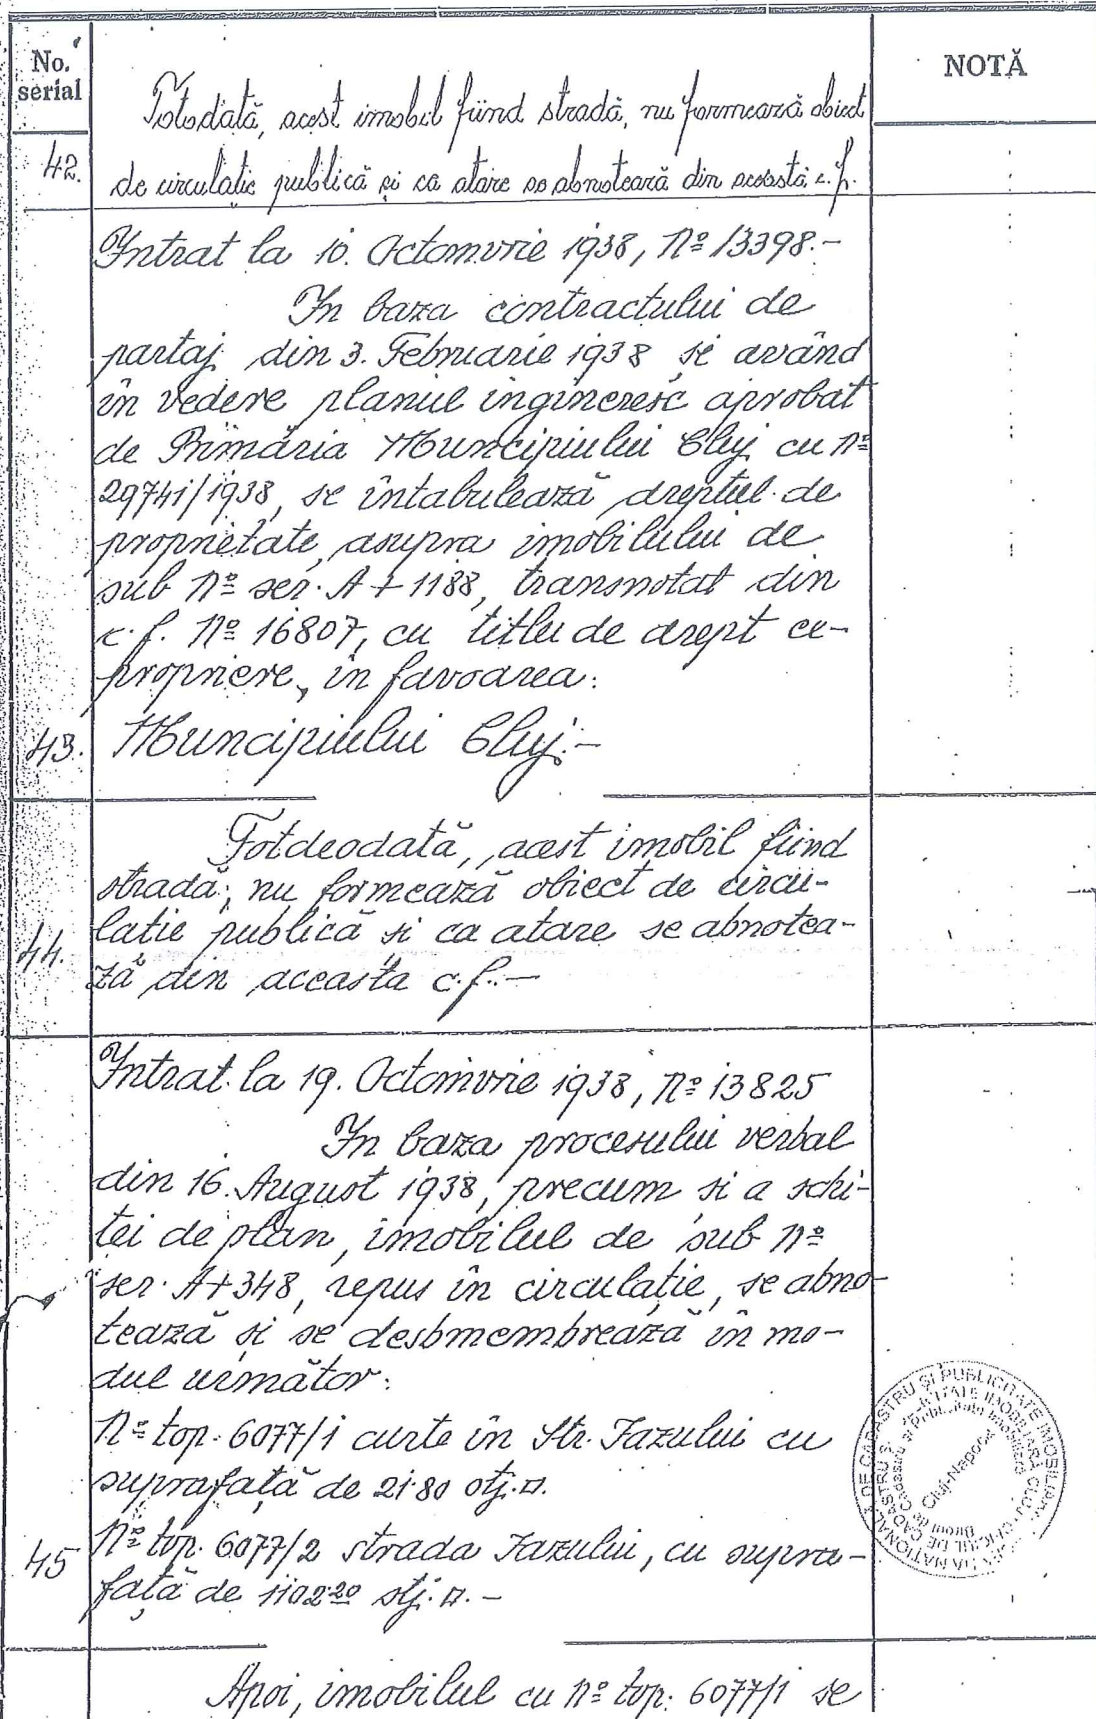 No.
serial
NOTĂ
Totodată, acest imobil fiind stradă, nu formează obiect
42. de circulație publică și ca atare se abnotează din această c.f.
Intrat la 10. Octomvrie 1938, Nº 13398.-
In baza contractului de
partaj din 3. Februarie 1938 și având
în vedere planul ingineresc aprobat
de Primăria Municipiului Cluj cu Nº
29741/1938, se întabulează dreptul de
proprietate asupra imobilului de
sub Nº ser. A+1188, transnotat din
c.f. Nº 16807, cu titlu de drept ex-
propriere, în favoarea:
43. Municipiului Cluj.-
Totdeodată, acest imobil fiind
stradă, nu formează obiect de circu-
lație publică și ca atare se abnotea-
44. ză din aceasta c.f.-
Intrat la 19. Octomvrie 1938, Nº 13825
In baza procesului verbal
din 16. August 1938, precum și a schi-
ței de plan, imobilul de sub Nº
ser. A+348, repus în circulație, se abno-
tează și se desbmembrează în mo-
dul următor:
Nº top. 6077/1 curte în Str. Iazului cu
suprafață de 21·80 stj.□.
45 Nº top. 6077/2 strada Iazului, cu supra-
față de 1102·20 stj.□.-
Apoi, imobilul cu Nº top. 6077/1 se
ȘI PUBLICITATE IMOBILIARĂ
Cluj-Napoca
Biroul de Cadastru și Publicitate Imobiliară